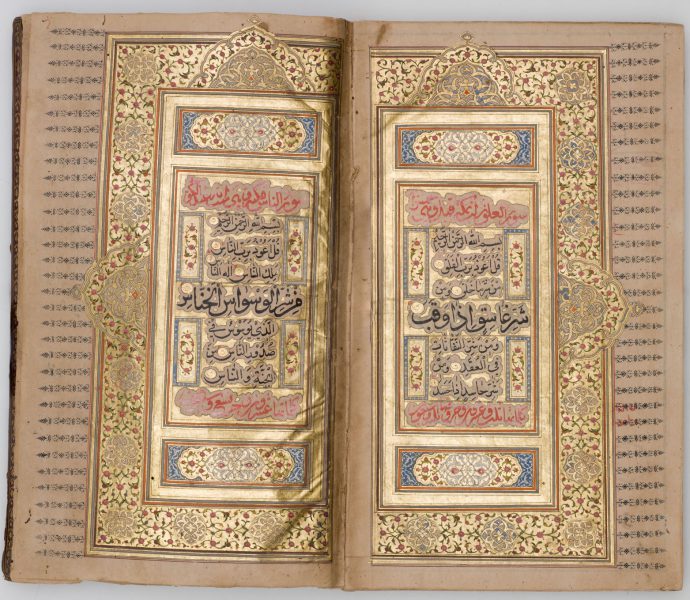 سورة الفلق
بسم الله الرحمن الرحيم
قل اعوذ برب الفلق
من شر ما خلق ومن
شر غاسق اذا وقب
ومن شر النفاثات
في العقد ومن
شر حاسد اذا حسد
سورة الناس
بسم الله الرحمن الرحيم
قل اعوذ برب الناس
ملك الناس اله النا
س من شر الوسواس الخناس
الذي يوسوس في
صدور الناس من
الجنة والناس